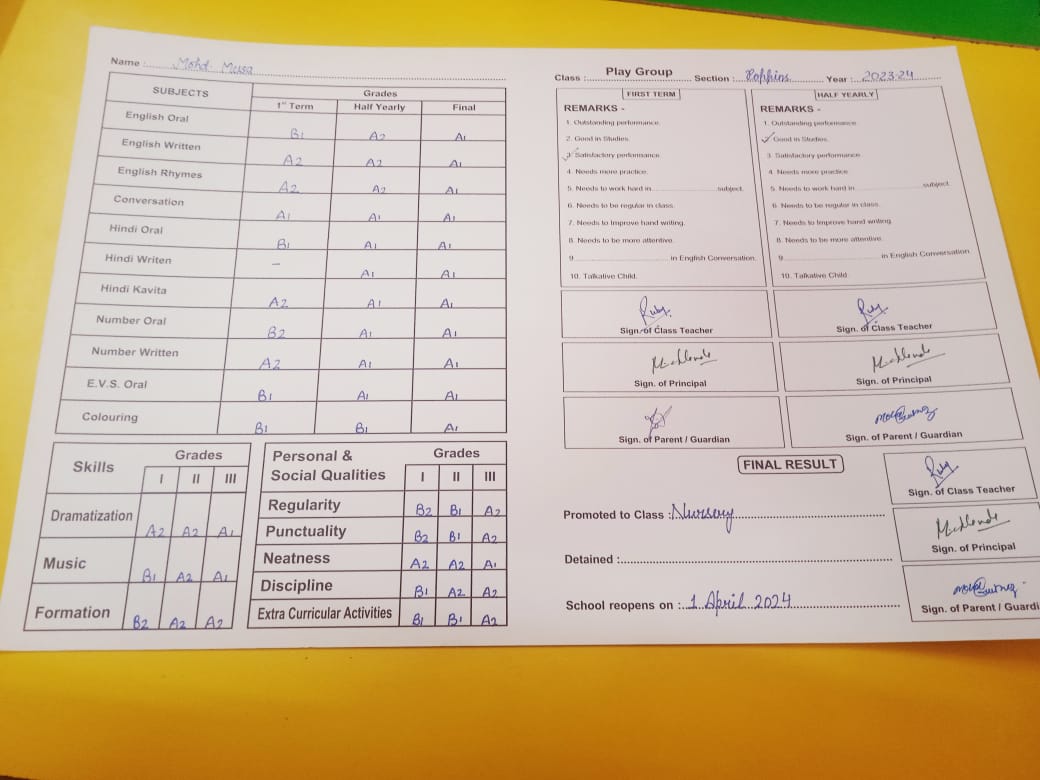 Name : Mohd. Musa
SUBJECTS Grades
1st Term Half Yearly Final
English Oral B1 A2 A1
English Written A2 A2 A1
English Rhymes A2 A2 A1
Conversation A1 A1 A1
Hindi Oral B1 A1 A1
Hindi Writen – A1 A1
Hindi Kavita A2 A1 A1
Number Oral B2 A1 A1
Number Written A2 A1 A1
E.V.S. Oral B1 A1 A1
Colouring B1 B1 A1
Skills Grades
I II III
Dramatization A2 A2 A1
Music B1 A2 A1
Formation B2 A2 A2
Personal & Social Qualities Grades
I II III
Regularity B2 B1 A2
Punctuality B2 B1 A2
Neatness A2 A2 A1
Discipline B1 A2 A2
Extra Curricular Activities B1 B1 A2
Class : Play Group Section : Poppins Year : 2023-24
FIRST TERM
REMARKS -
1. Outstanding performance.
2. Good in Studies.
✓ 3. Satisfactory performance
4. Needs more practice.
5. Needs to work hard in subject.
6. Needs to be regular in class.
7. Needs to Improve hand writing.
8. Needs to be more attentive.
9 in English Conversation.
10. Talkative Child.
Sign. of Class Teacher
Sign. of Principal
Sign. of Parent / Guardian
HALF YEARLY
REMARKS -
1. Outstanding performance.
✓ Good in Studies.
3. Satisfactory performance
4. Needs more practice
5. Needs to work hard in subject.
6. Needs to be regular in class.
7. Needs to Improve hand writing.
8. Needs to be more attentive.
9 in English Conversation
10. Talkative Child.
Ruby
Sign. of Class Teacher
Sign. of Principal
Sign. of Parent / Guardian
FINAL RESULT
Promoted to Class : Nursery
Detained :
School reopens on : 1 April 2024
Ruby
Sign. of Class Teacher
Sign. of Principal
Sign. of Parent / Guardi